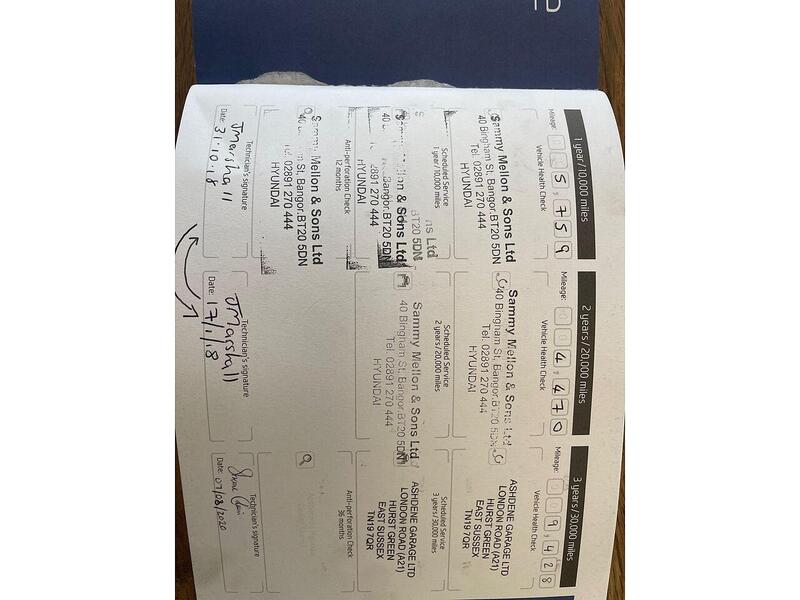 1 year/10,000 miles
Mileage: 5,759
Vehicle Health Check
Sammy Mellon & Sons Ltd
40 Bingham St, Bangor, BT20 5DN
Tel. 02891 270 444
HYUNDAI
Scheduled Service
1 year / 10,000 miles
ns Ltd
BT20 5DN
Sammy Mellon & Sons Ltd
40 Bangor, BT20 5DN
02891 270 444
HYUNDAI
Anti-perforation Check
12 months
Sammy Mellon & Sons Ltd
40 Bingham St, Bangor, BT20 5DN
Tel. 02891 270 444
HYUNDAI
Technician's signature
JMarshall
Date: 31.10.18
2 years/20,000 miles
Mileage: 4,470
Vehicle Health Check
Sammy Mellon & Sons Ltd
40 Bingham St, Bangor, BT20 5DN
Tel. 02891 270 444
HYUNDAI
Scheduled Service
2 years / 20,000 miles
Sammy Mellon & Sons Ltd
40 Bingham St, Bangor, BT20 5DN
Tel. 02891 270 444
HYUNDAI
Technician's signature
JMarshall
Date: 17/1/18
3 years/30,000 miles
Mileage: 9,428
Vehicle Health Check
ASHDENE GARAGE LTD
LONDON ROAD (A21)
HURST GREEN
EAST SUSSEX
TN19 7QR
Scheduled Service
3 years / 30,000 miles
ASHDENE GARAGE LTD
LONDON ROAD (A21)
HURST GREEN
EAST SUSSEX
TN19 7QR
Anti-perforation Check
36 months
Technician's signature
Date: 07/08/2020